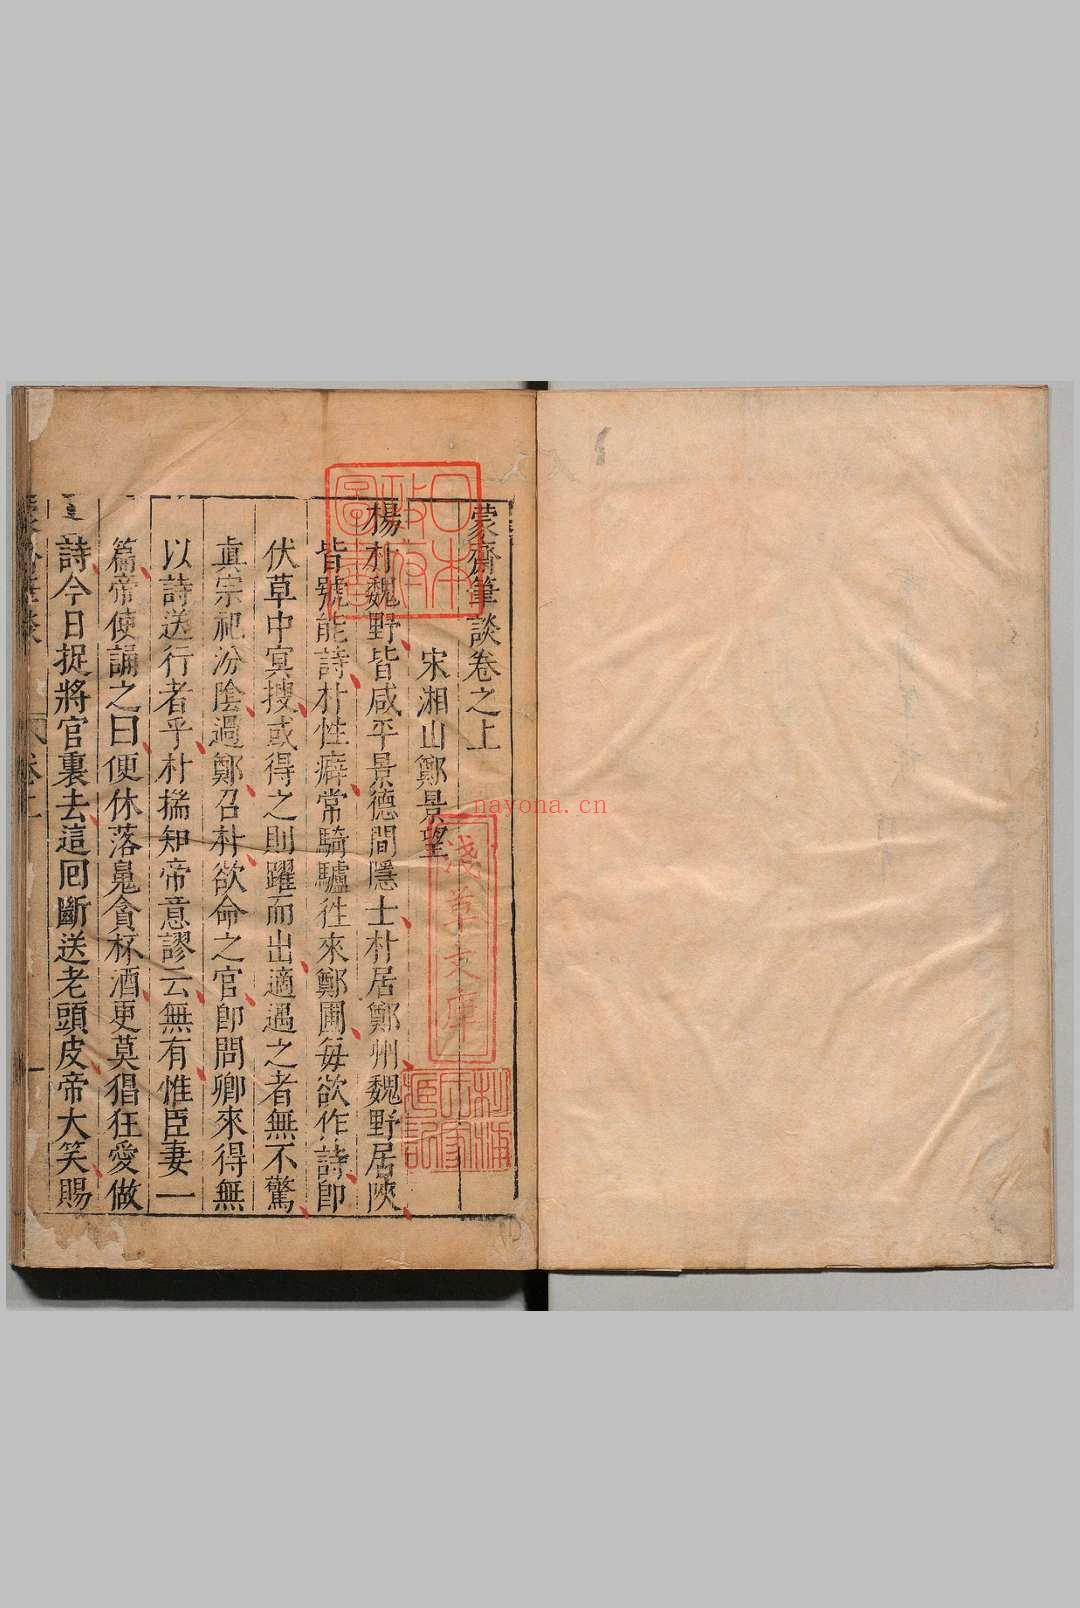 蒙齋筆談卷之上
宋湘山鄭景望
楊朴魏野皆咸平景德間隱士朴居鄭州魏野居陝
皆號能詩朴性癖常騎驢徃來鄭圃每欲作詩卽
伏草中㝠搜或得之則躍而出適遇之者無不驚
眞宗祀汾陰過鄭召朴欲命之官卽問卿來得無
以詩送行者乎朴揣知帝意謬云無有惟臣妻一
篇帝使誦之曰便休落䰟貪杯酒更莫猖狂愛做
詩今日捉將官裏去這囘斷送老頭皮帝大笑賜
日本
政府
圖書
淺草文庫
nayona.cn